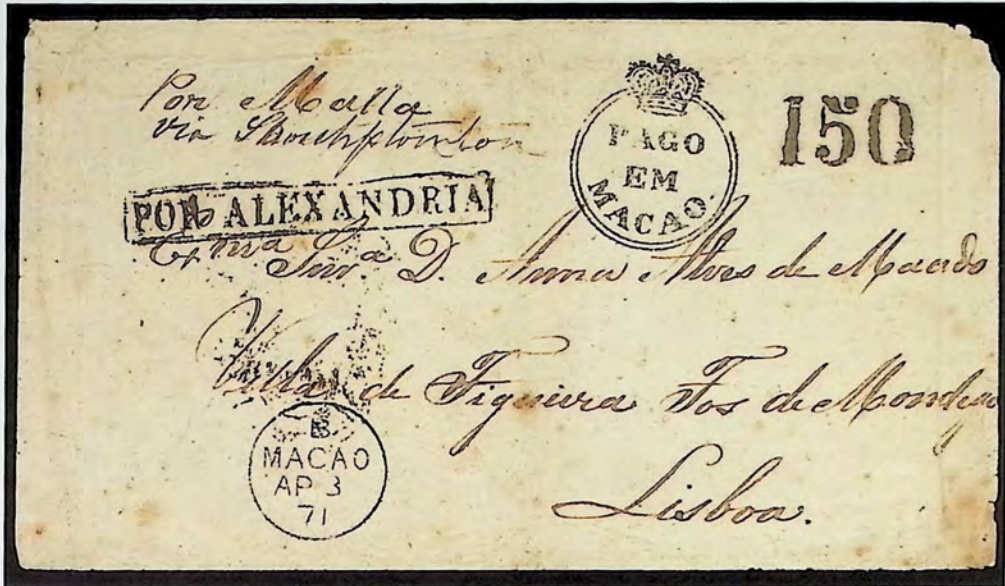 Por Malla
via Southptonton
PAGO
EM
MACAO.
150
POR ALEXANDRIA
Exma Snra D. Anna Alves de Macedo
Villa de Figueira Fos de Mondego
B
MACAO
AP 3
71
Lisboa.